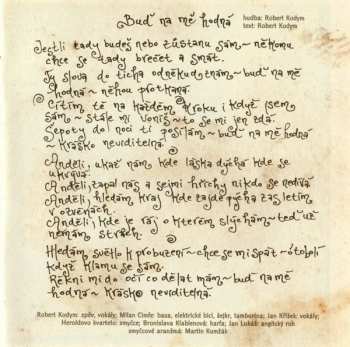 Buď na mě hodná
hudba: Robert Kodym
text: Robert Kodym
Jestli tady budeš nebo zůstanu sám ~ někomu
chce se tady brečet a smát.
Tvý slova do ticha odněkud znám ~ buď na mě
hodná ~ něhou protkaná.
Cítím tě na každém kroku i když jsem
sám ~ stále mi voníš ~ to se mi jen zdá.
Šepoty do noci ti posílám ~ buď na mě hodná
~ krásko neviditelná.
Anděli, ukaž nám kde láska dýchá kde se
ukrývá.
Anděli, zapal nás a sejmi hříchy nikdo se nedívá
Anděli, hledám kraj kde zajde pýcha zas letím
v ozvěnách.
Anděli, kde je ráj o kterém slýchám ~ teď už
nemám strach.
Hledám světlo k probuzení ~ chce se mi spát ~ to bolí
když klamu se sám.
Řekni mi do očí co dělat mám ~ buď na mě
hodná ~ krásko neviditelná.
Robert Kodym: zpěv, vokály; Milan Cimfe: basa, elektrické bicí, šejkr, tamburína; Jan Kříšek: vokály;
Heroldovo kvarteto: smyčce; Bronislava Klablenová: harfa, Jan Lukáš: anglický roh
smyčcové aranžmá: Martin Kumžák